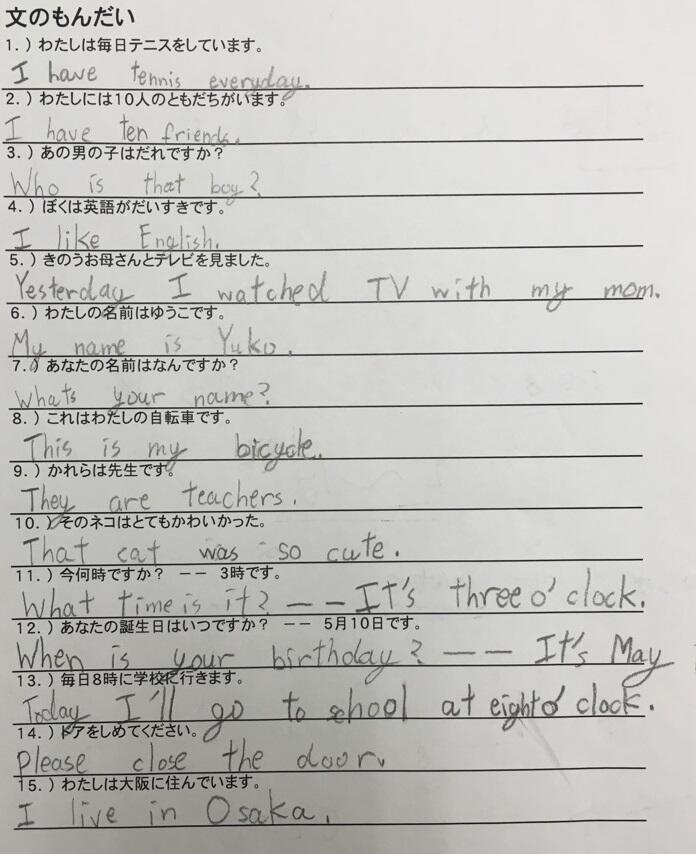 文のもんだい
1.）わたしは毎日テニスをしています。
I have tennis everyday.
2.）わたしには10人のともだちがいます。
I have ten friends.
3.）あの男の子はだれですか？
Who is that boy?
4.）ぼくは英語がだいすきです。
I like English.
5.）きのうお母さんとテレビを見ました。
Yesterday I watched TV with my mom.
6.）わたしの名前はゆうこです。
My name is Yuko.
7.）あなたの名前はなんですか？
Whats your name?
8.）これはわたしの自転車です。
This is my bicycle.
9.）かれらは先生です。
They are teachers.
10.）そのネコはとてもかわいかった。
That cat was so cute.
11.）今何時ですか？ －－ 3時です。
What time is it? －－It's three o'clock.
12.）あなたの誕生日はいつですか？ －－ 5月10日です。
When is your birthday? －－ It's May
13.）毎日8時に学校に行きます。
Today I'll go to school at eight o'clock.
14.）ドアをしめてください。
Please close the door.
15.）わたしは大阪に住んでいます。
I live in Osaka.